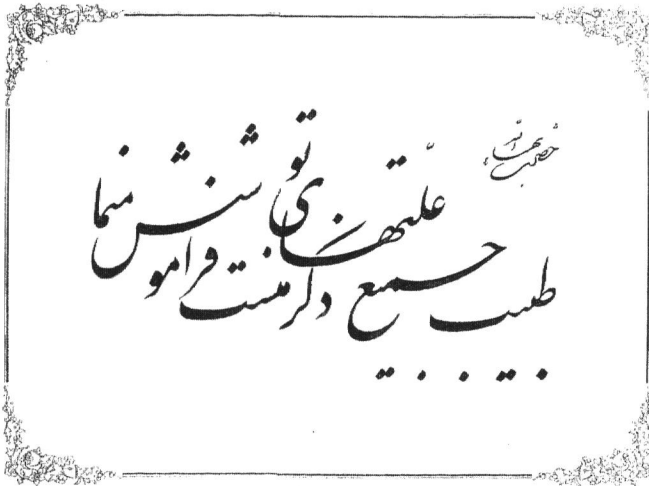 حضرت بهاءالله
طبیب جمیع علّتهای تو ذکر منست فراموشش منما